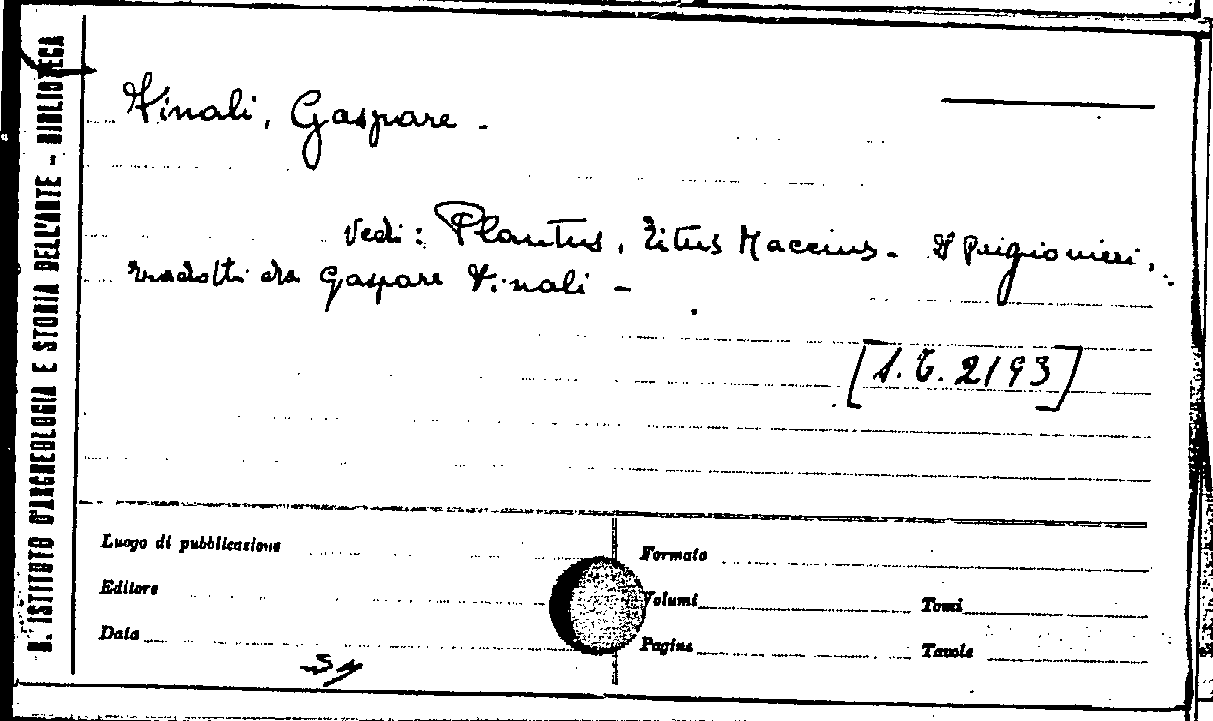 R. ISTITUTO D'ARCHEOLOGIA E STORIA DELL'ARTE - BIBLIOTECA
Finali, Gaspare -
Vedi: Plautus, Titus Maccius - I Prigionieri,
tradotti da Gaspare Finali -
[S. T. 2193]
Luogo di pubblicazione
Formato
Editore
Volumi
Tomi
Data
Pagine
Tavole